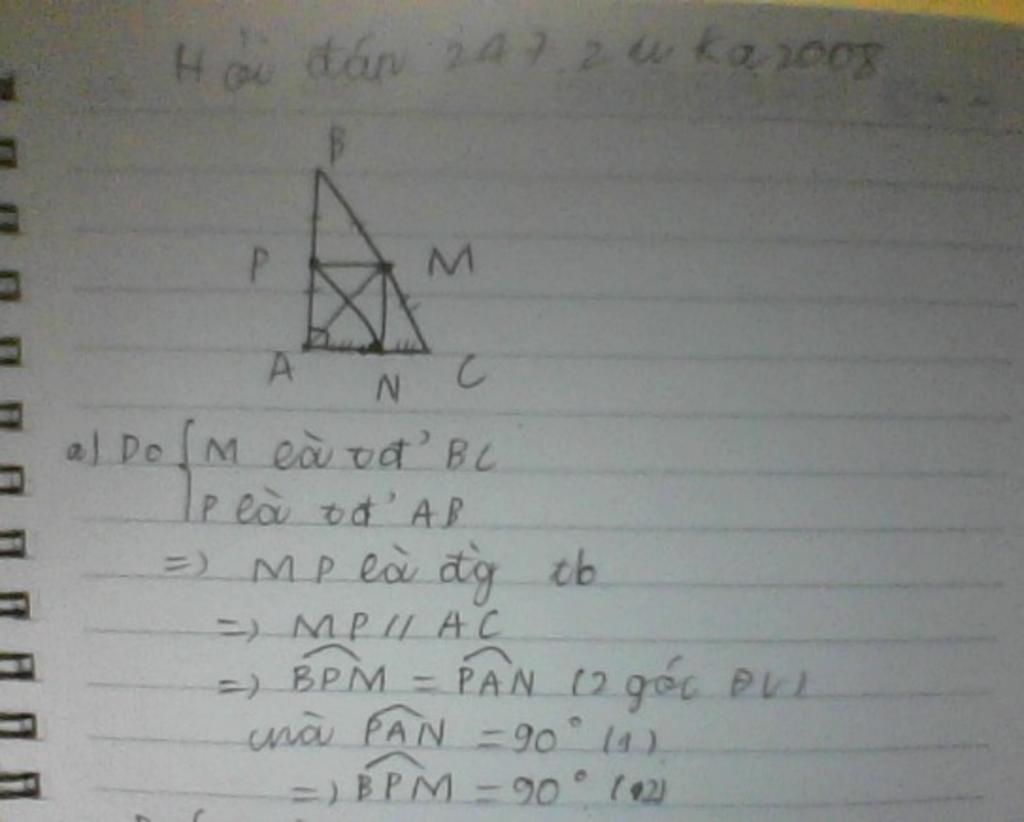 Hỏi đán 247. 2 uka2008
B
P M
A N C
a) Do { M là tđ' BC
P là tđ' AB
=) MP là đ'g tb
=) MP // AC
=) BPM = PAN (2 góc ĐV)
mà PAN = 90° (1)
=) BPM = 90° (2)